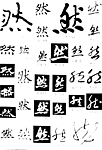 然 然 然
然 然 然 然
然 然 然 然
然 然 然 然
然 然 然 然
然 然 然